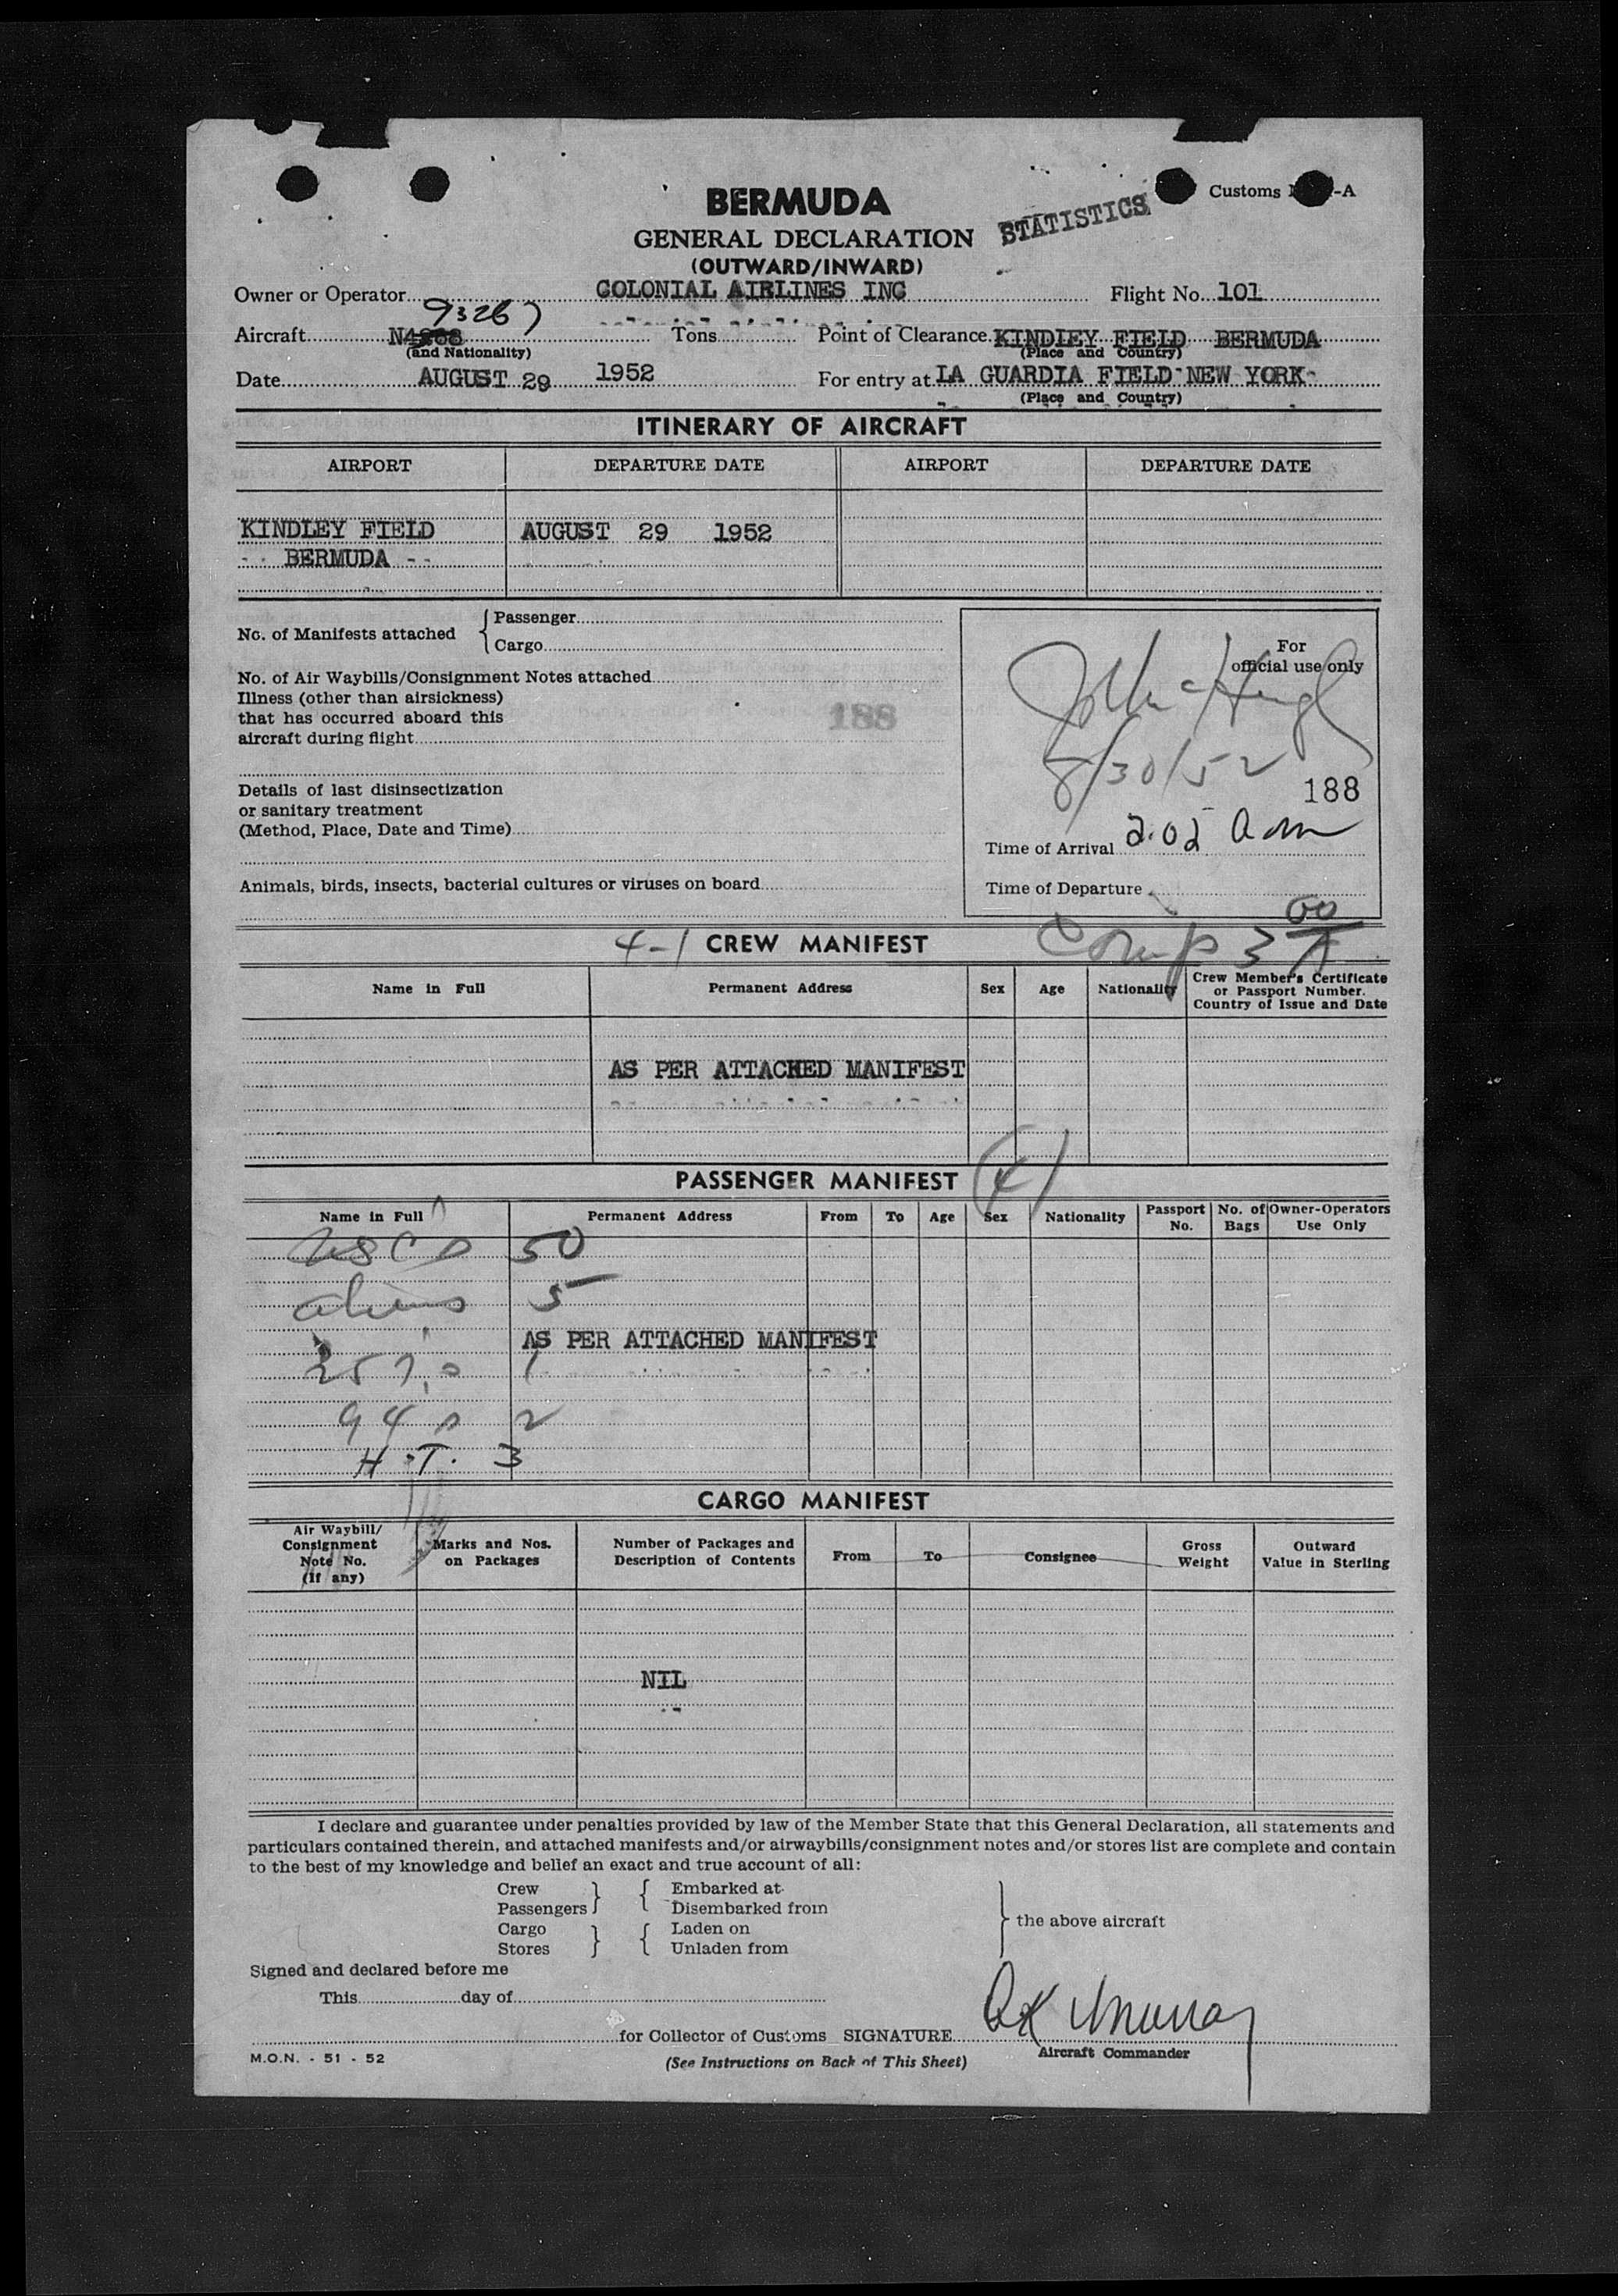 BERMUDA
Customs -A
STATISTICS
GENERAL DECLARATION
(OUTWARD/INWARD)
Owner or Operator COLONIAL AIRLINES INC Flight No. 101
93267
Aircraft N Tons Point of Clearance KINDLEY FIELD BERMUDA
(and Nationality) (Place and Country)
Date AUGUST 29 1952 For entry at LA GUARDIA FIELD NEW YORK
(Place and Country)
ITINERARY OF AIRCRAFT
AIRPORT DEPARTURE DATE AIRPORT DEPARTURE DATE
KINDLEY FIELD AUGUST 29 1952
BERMUDA
No. of Manifests attached
Passenger
Cargo
No. of Air Waybills/Consignment Notes attached
Illness (other than airsickness)
that has occurred aboard this
aircraft during flight
188
Details of last disinsectization
or sanitary treatment
(Method, Place, Date and Time)
Animals, birds, insects, bacterial cultures or viruses on board
For
official use only
8/30/52
188
Time of Arrival 2.05 am
Time of Departure
4-1 CREW MANIFEST
Comp 3 00
Name in Full Permanent Address Sex Age Nationality Crew Member's Certificate
or Passport Number.
Country of Issue and Date
AS PER ATTACHED MANIFEST
PASSENGER MANIFEST (4)
Name in Full Permanent Address From To Age Sex Nationality Passport No. No. of Bags Owner-Operators Use Only
USC 50
aliens 5
AS PER ATTACHED MANIFEST
257 1
94 2
H.T. 3
CARGO MANIFEST
Air Waybill/
Consignment
Note No.
(If any)
Marks and Nos.
on Packages
Number of Packages and
Description of Contents
From To Consignee
Gross
Weight
Outward
Value in Sterling
NIL
I declare and guarantee under penalties provided by law of the Member State that this General Declaration, all statements and
particulars contained therein, and attached manifests and/or airwaybills/consignment notes and/or stores list are complete and contain
to the best of my knowledge and belief an exact and true account of all:
Crew Embarked at
Passengers Disembarked from
Cargo Laden on
Stores Unladen from
the above aircraft
Signed and declared before me
This day of
for Collector of Customs SIGNATURE Murray
Aircraft Commander
M.O.N. - 51 - 52
(See Instructions on Back of This Sheet)